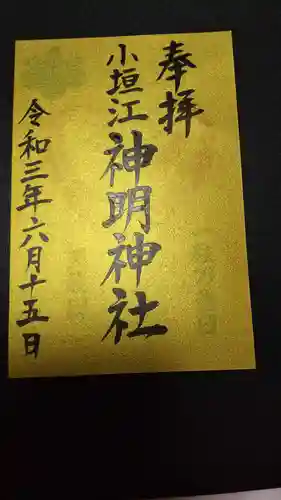 奉拝
小垣江神明神社
令和三年六月十五日